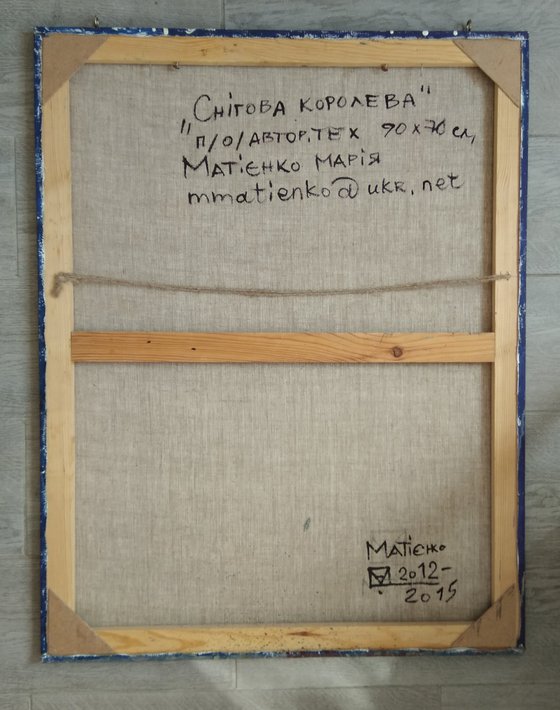 "СНІГОВА КОРОЛЕВА"
П/О/АВТОР.ТЕХ 90х70 см,
МАТІЄНКО МАРІЯ
mmatienko@ukr.net
МАТІЄНКО
2012-
2015